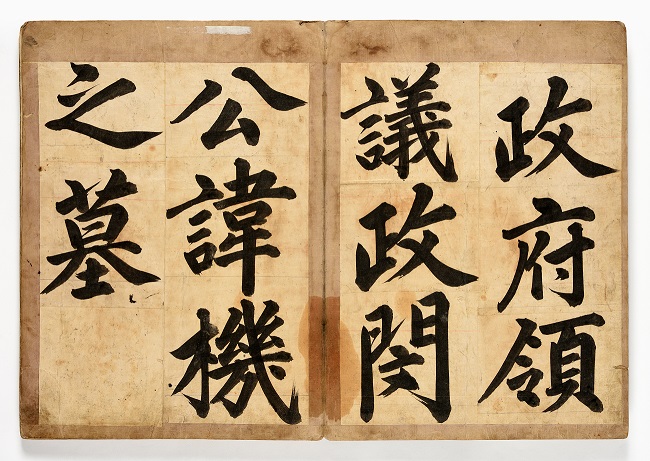 政府領
議政閔
公諱機
之墓